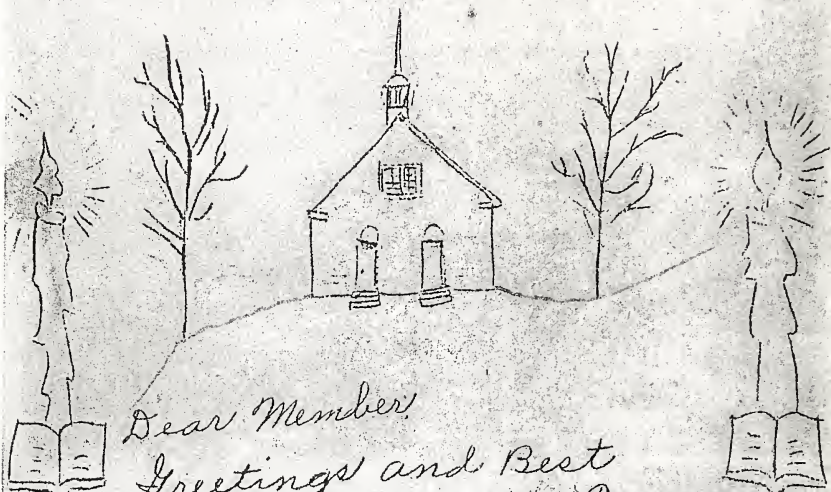 Dear Member
Greetings and Best